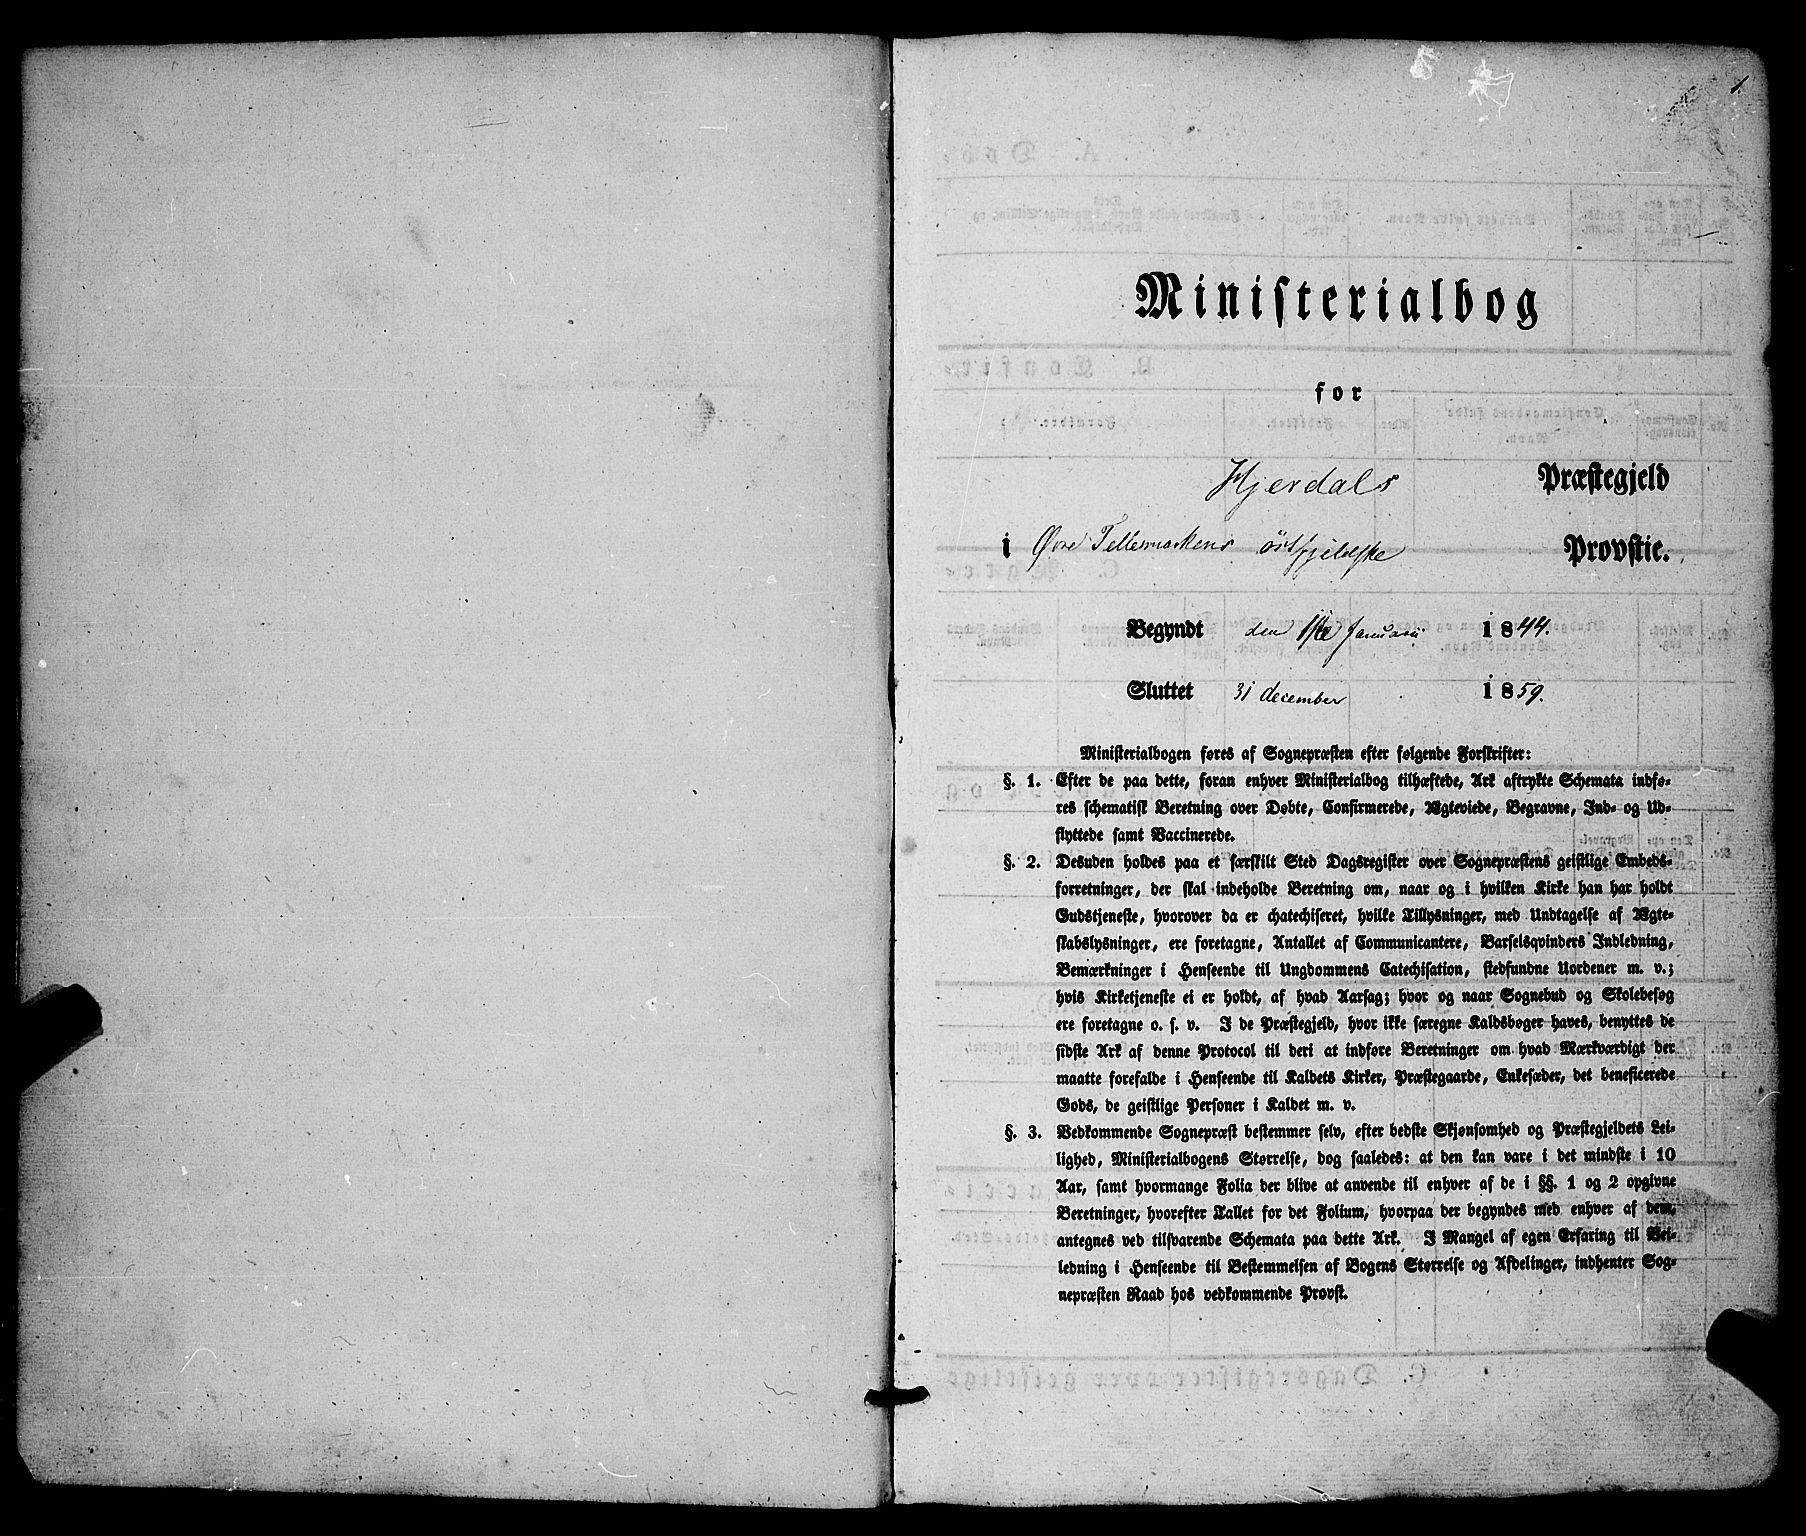 1.
Ministerialbog
for
Hjerdals Præstegjeld
i Øvre Tellemarkens østfjeldske Provstie.
Begyndt den 1ste Januar 1844.
Sluttet 31 december 1859.
Ministerialbogen føres af Sognepræsten efter følgende Forskrifter:
§. 1. Efter de paa dette, foran enhver Ministerialbog tilhæftede, Ark aftrykte Schemata indfø-
res schematisk Beretning over Døbte, Confirmerede, Ægteviede, Begravne, Ind- og Ud-
flyttede samt Vaccinerede.
§. 2. Desuden holdes paa et særskilt Sted Dagsregister over Sognepræstens geistlige Embeds-
forretninger, der skal indeholde Beretning om, naar og i hvilken Kirke han har holdt
Gudstjeneste, hvorover da er chatechiseret, hvilke Tillysninger, med Undtagelse af Ægte-
skabslysninger, ere foretagne, Antallet af Communicantere, Barselqvinders Indledning,
Bemærkninger i Henseende til Ungdommens Catechisation, stedfundne Uordener m. v.;
hvis Kirketjeneste ei er holdt, af hvad Aarsag; hvor og naar Sognebud og Skolebesøg
ere foretagne o. s. v. I de Præstegjeld, hvor ikke særegne Kaldsbøger haves, benyttes de
sidste Ark af denne Protocol til deri at indføre Beretninger om hvad Mærkværdigt der
maatte forefalde i Henseende til Kaldets Kirker, Præstegaarde, Enkesæder, det beneficerede
Gods, de geistlige Personer i Kaldet m. v.
§. 3. Vedkommende Sognepræst bestemmer selv, efter bedste Skjønsomhed og Præstegjeldets Lei-
lighed, Ministerialbogens Størrelse, dog saaledes: at den kan vare i det mindste i 10
Aar, samt hvormange Folia der blive at anvende til enhver af de i §§. 1 og 2 opgivne
Beretninger, hvorefter Tallet for det Folium, hvorpaa der begyndes med enhver af dem,
antegnes ved tilsvarende Schemata paa dette Ark. I Mangel af egen Erfaring til Vei-
ledning i Henseende til Bestemmelsen af Bogens Størrelse og Afdelinger, indhenter Sog-
nepræsten Raad hos vedkommende Provst.